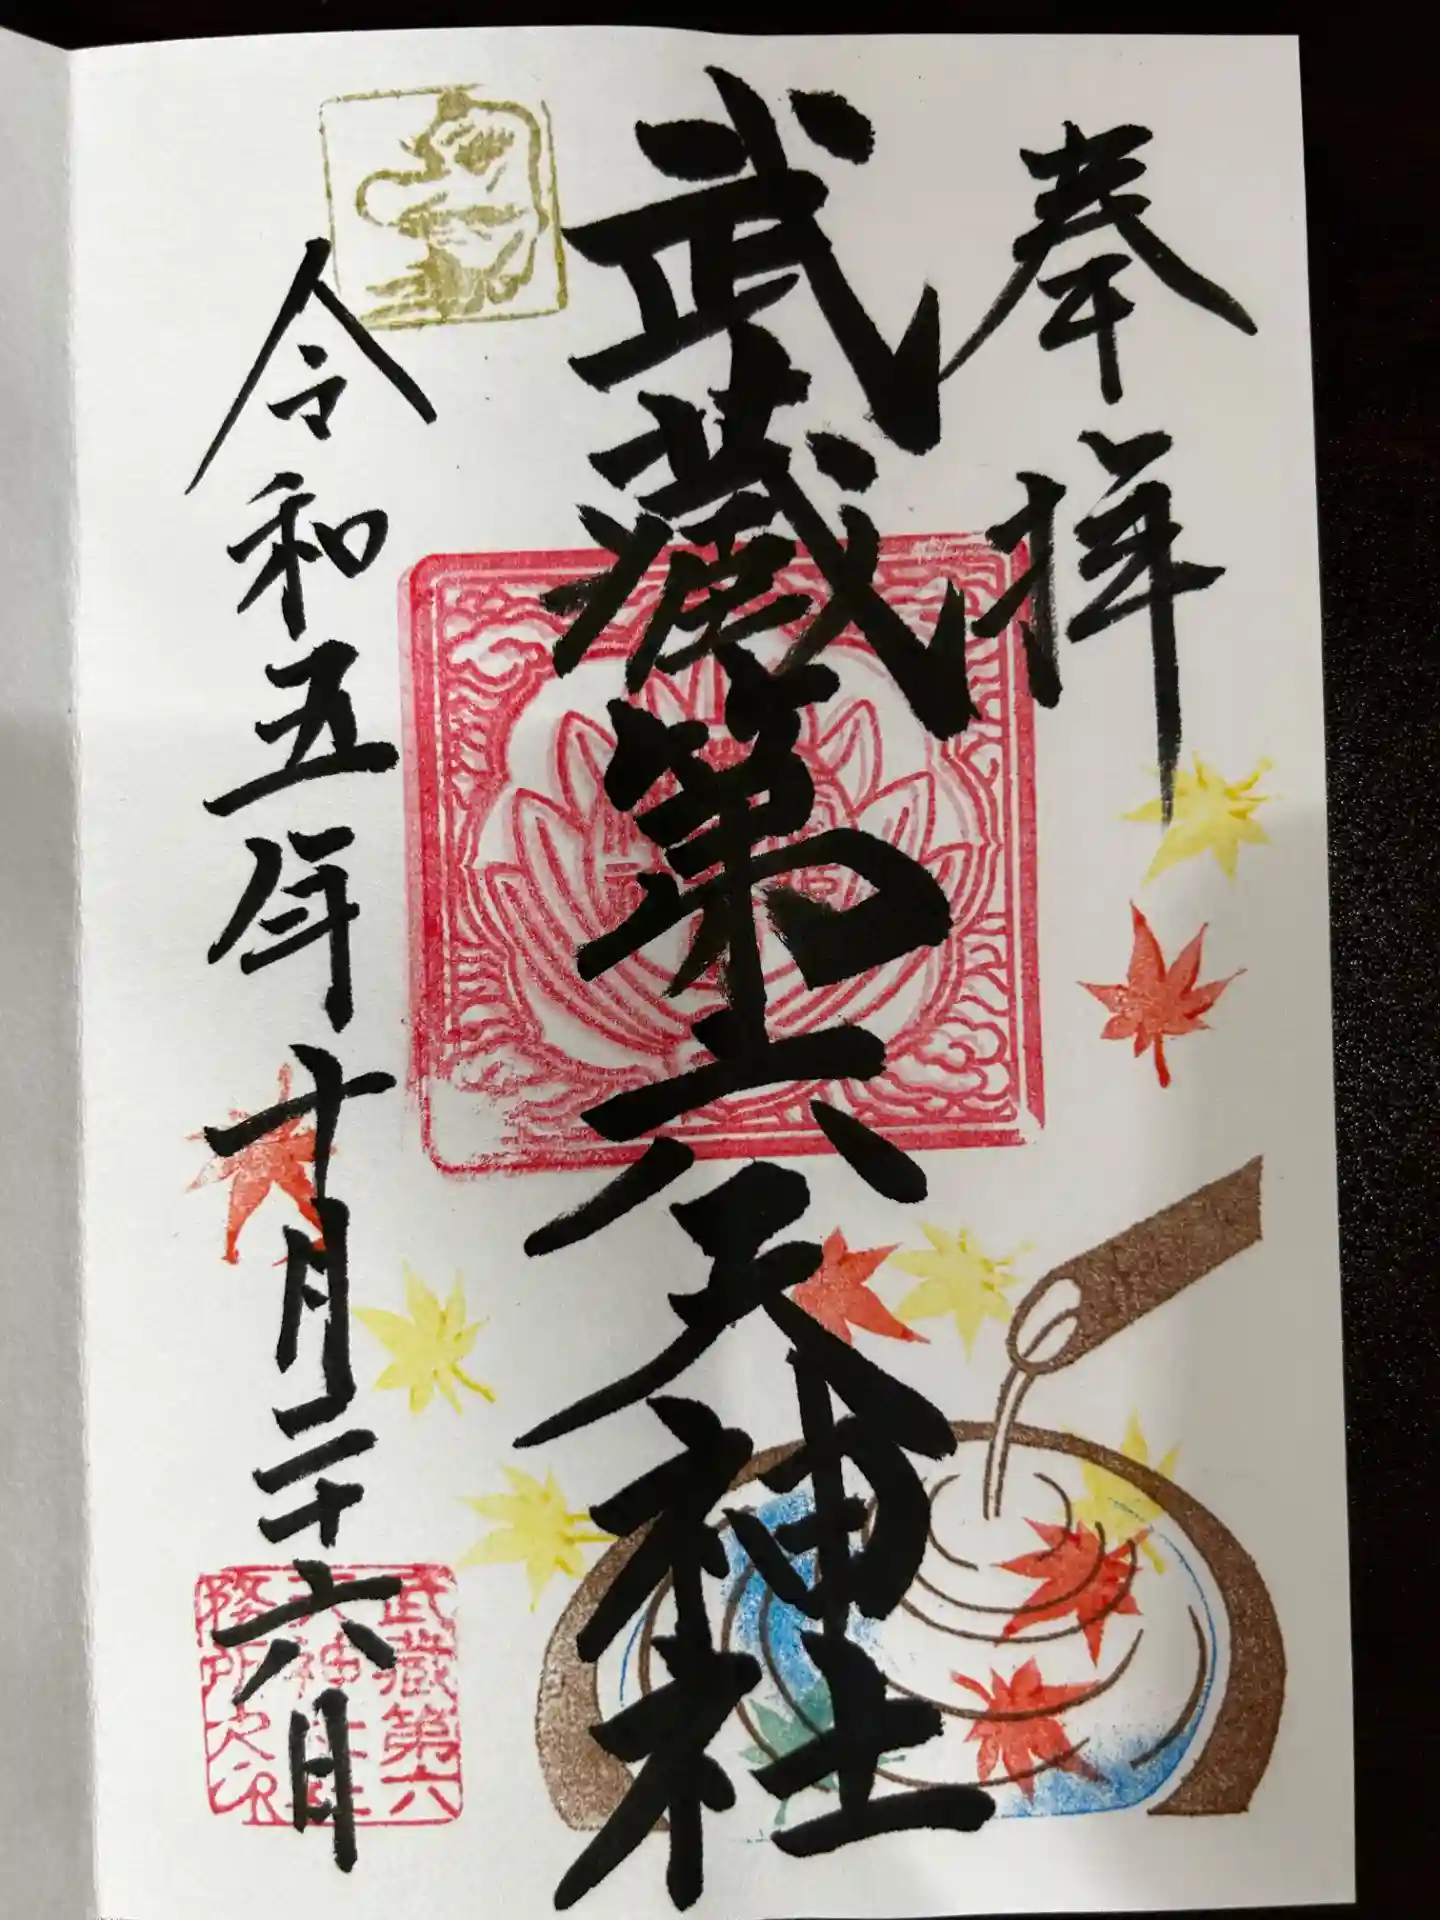 奉拝
武蔵第六天神社
令和五年十月二十六日
武蔵第六
天神社
務所之印